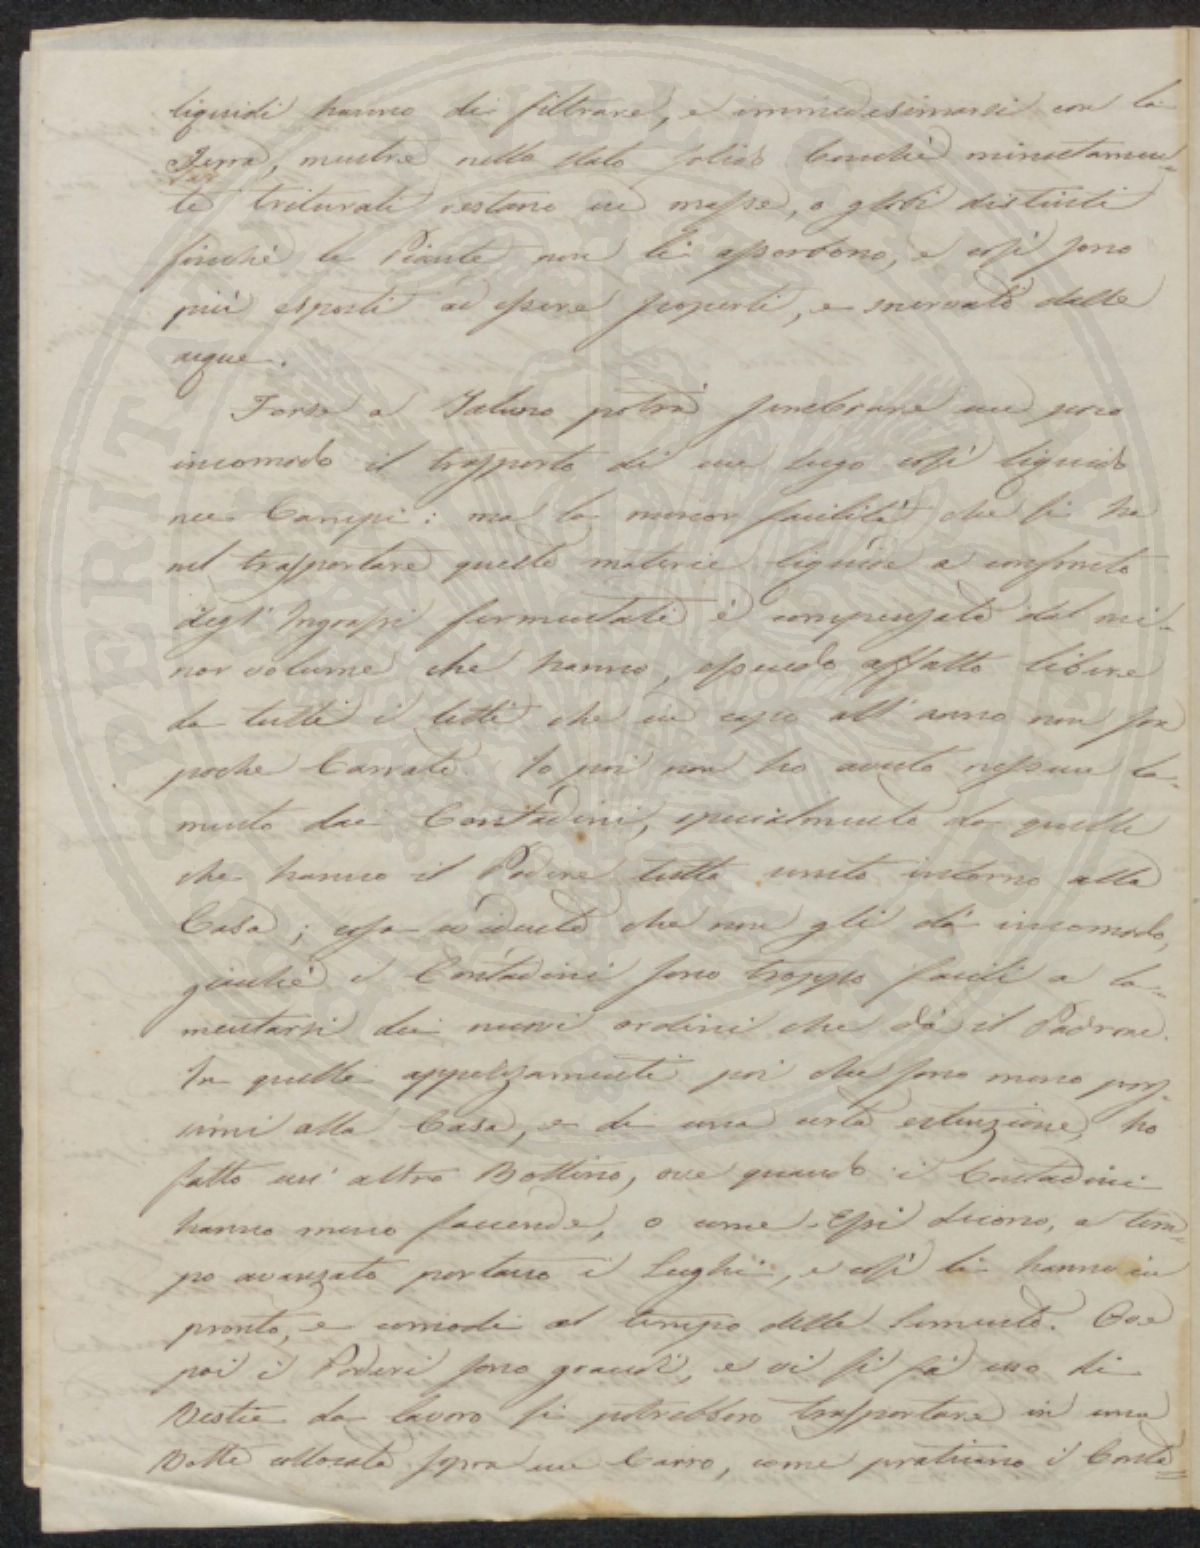 liquidi hanno di filtrare, e immedesimarsi con la
Terra, mentre nello stato solido benchè minutamen-
te triturati restano in masse, o globi distinti
finchè le Piante non li assorbono, e così sono
più esposti ad essere scoperti, e snervati dalle
acque.
Forse a Taluno potrà sembrare un poco
incomodo il trasporto di un sugo così liquido
nei Campi: ma la minor facilità che si ha
nel trasportare queste materie liquide a confronto
degl' Ingrassi fermentati è compensata dal mi-
nor volume che hanno, essendo affatto libere
da tutti i letti che in capo all' anno non son
poche Carrate. Io poi non ho avuto nessun la-
mento dai Contadini, specialmente da quelli
che hanno il Podere tutto unito intorno alla
Casa; cosa evidente che non gli dà incomodo,
giacchè i Contadini sono troppo facili a la-
mentarsi dei nuovi ordini che dà il Padrone.
In quelli appezzamenti poi che sono meno pros-
simi alla Casa, e di una certa estenzione, ho
fatto un' altro Bottino, ove quando i Contadini
hanno meno faccende, o come Essi dicono, a tem-
po avanzato portano i Sughi, e così li hanno in
pronto, e comodi al tempo delle Semente. Ove
poi i Poderi sono grandi, e vi si fà uso di
Bestie da lavoro si potrebbero trasportare in una
Botte collocata sopra un Carro, come praticano i Conta=